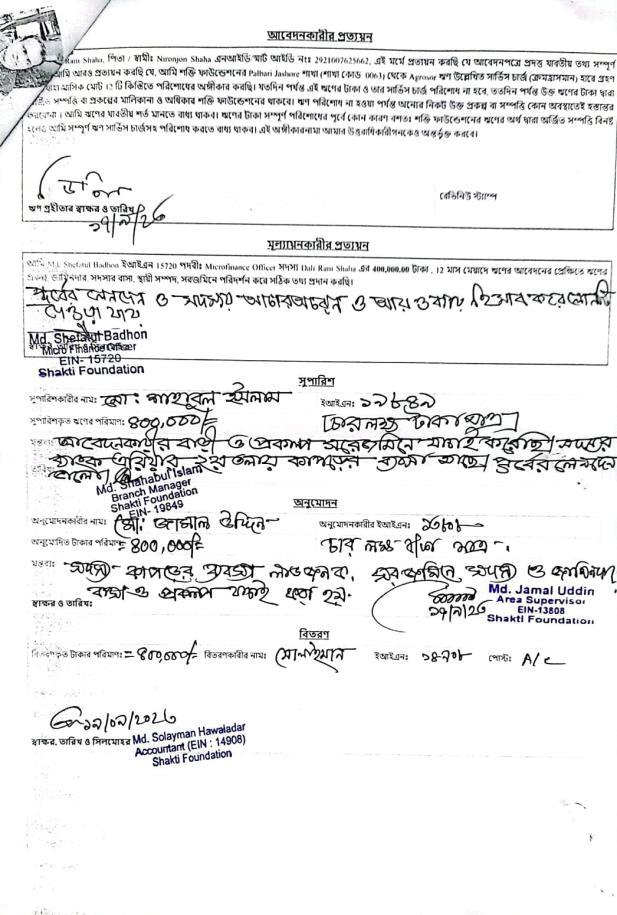 আবেদনকারীর প্রত্যয়ন
Rani Shaha, পিতা / স্বামীঃ Nironjon Shaha এনআইডি/স্মার্ট আইডি নংঃ 2921007625662, এই মর্মে প্রত্যয়ন করছি যে আবেদনপত্রে প্রদত্ত যাবতীয় তথ্য সম্পূর্ণ
আমি আরও প্রত্যয়ন করছি যে, আমি শক্তি ফাউন্ডেশনের Palbari Jashore শাখা (শাখা কোড 0063) থেকে Agrosor ঋণ উল্লেখিত সার্ভিস চার্জ (ক্রমহ্রাসমান) হারে গ্রহণ
মাসিক মোট 12 টি কিস্তিতে পরিশোধের অঙ্গীকার করছি। যতদিন পর্যন্ত এই ঋণের টাকা ও তার সার্ভিস চার্জ পরিশোধ না হবে, ততদিন পর্যন্ত উক্ত ঋণের টাকা দ্বারা
সম্পত্তি বা প্রকল্পের মালিকানা ও অধিকার শক্তি ফাউন্ডেশনের থাকবে। ঋণ পরিশোধ না হওয়া পর্যন্ত অন্যের নিকট উক্ত প্রকল্প বা সম্পত্তি কোন অবস্থাতেই হস্তান্তর
করবোনা। আমি ঋণের যাবতীয় শর্ত মানতে বাধ্য থাকব। ঋণের টাকা সম্পূর্ণ পরিশোধের পূর্বে কোন কারণ বশতঃ শক্তি ফাউন্ডেশনের ঋণের অর্থ দ্বারা অর্জিত সম্পত্তি বিনষ্ট
হলেও আমি সম্পূর্ণ ঋণ সার্ভিস চার্জসহ পরিশোধ করতে বাধ্য থাকব। এই অঙ্গীকারনামা আমার উত্তরাধিকারীগনকেও অন্তর্ভুক্ত করবে।
রেভিনিউ স্ট্যাম্প
ঋণ গ্রহীতার স্বাক্ষর ও তারিখ
মূল্যায়নকারীর প্রত্যয়ন
আমি Md. Shefatul Badhon ইআইএন 15720 পদবীঃ Microfinance Officer সদস্য Dali Rani Shaha এর 400,000.00 টাকা , 12 মাস মেয়াদে ঋণের আবেদনের প্রেক্ষিতে ঋণের
জামিনদার, সদস্যর বাসা, স্থায়ী সম্পদ, সরজমিনে পরিদর্শন করে সঠিক তথ্য প্রদান করছি।
পূর্বের লেনদেন ও সদস্যর আচারআচরন ও আয় ও ব্যয় হিসাব করে লোনটি
দেওয়া যায়
Md. Shefatul Badhon
Micro Finance Officer
EIN- 15720
Shakti Foundation
সুপারিশ
সুপারিশকারীর নাম: মো: শাহাবুল ইসলাম ইআইএন: ১৯৮৪৯
সুপারিশকৃত ঋণের পরিমাণ: ৪০০,০০০/= চার লক্ষ টাকা মাত্র
মন্তব্য: আবেদনকারীর বাড়ী ও প্রকল্প সরেজমিনে যাচাই করেছি। সদস্যের
কাপড়ের ব্যবসা আছে। পূর্বের লেনদেন
ভালো।
Md. Shahabul Islam
Branch Manager
Shakti Foundation
EIN- 19849
অনুমোদন
অনুমোদনকারীর নাম: মো: জামাল উদ্দিন অনুমোদনকারীর ইআইএন: ১৩৮০৮
অনুমোদিত টাকার পরিমাণ: = ৪০০,০০০/= চার লক্ষ টাকা মাত্র
মন্তব্য: সদস্য কাপড়ের ব্যবসা লাভজনক, সরজমিনে সদস্য ও জামিনদার
বাসা ও প্রকল্প যাচাই করা হয়।
স্বাক্ষর ও তারিখ:
Md. Jamal Uddin
Area Supervisor
EIN-13808
Shakti Foundation
বিতরণ
বিতরণকৃত টাকার পরিমাণ: = ৪০০,০০০/= বিতরণকারীর নাম: সোলাইমান ইআইএন: ১৪৯০৮ পোস্ট: A/C
স্বাক্ষর, তারিখ ও সিলমোহর
Md. Solayman Hawaladar
Accountant (EIN : 14908)
Shakti Foundation